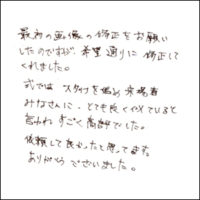 最初の画像の修正をお願い
したのですが、希望通りに修正して
くれました。
式では スタッフを始め 来場者
みなさんに、とても良く似ていると
言われ すごく高評でした。
依頼して良かったと思ってます。
ありがとう ございました。